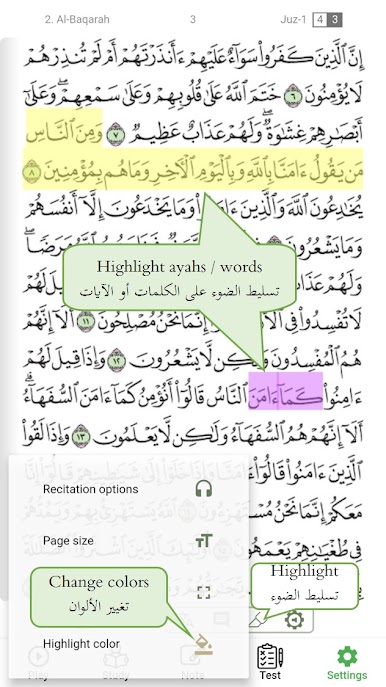 2. Al-Baqarah 3 Juz-1 4 3
إِنَّ ٱلَّذِينَ كَفَرُوا۟ سَوَآءٌ عَلَيْهِمْ ءَأَنذَرْتَهُمْ أَمْ لَمْ تُنذِرْهُمْ
لَا يُؤْمِنُونَ ٦ خَتَمَ ٱللَّهُ عَلَىٰ قُلُوبِهِمْ وَعَلَىٰ سَمْعِهِمْ ۖ وَعَلَىٰٓ
أَبْصَٰرِهِمْ غِشَٰوَةٌ ۖ وَلَهُمْ عَذَابٌ عَظِيمٌ ٧ وَمِنَ ٱلنَّاسِ
مَن يَقُولُ ءَامَنَّا بِٱللَّهِ وَبِٱلْيَوْمِ ٱلْـَٔاخِرِ وَمَا هُم بِمُؤْمِنِينَ ٨
يُخَٰدِعُونَ ٱللَّهَ وَٱلَّذِينَ ءَامَنُوا۟ وَمَا يَخْدَعُونَ إِلَّآ أَنفُسَهُمْ
وَمَا يَشْعُرُونَ
Highlight ayahs / words
تسليط الضوء على الكلمات أو الآيات
وَلَهُمْ عَذَابٌ
لَا تُفْسِدُوا۟ فِى إِنَّمَا نَحْنُ مُصْلِحُونَ ١١ أَلَآ إِنَّهُمْ
هُمُ ٱلْمُفْسِدُونَ وَلَٰكِن لَّا يَشْعُرُونَ ١٢ وَإِذَا قِيلَ لَهُمْ
ءَامِنُوا۟ كَمَآ ءَامَنَ ٱلنَّاسُ قَالُوٓا۟ أَنُؤْمِنُ كَمَآ ءَامَنَ ٱلسُّفَهَآءُ ۗ
أَلَآ إِنَّهُمْ هُمُ ٱلسُّفَهَآءُ وَلَٰكِن لَّا يَعْلَمُونَ ١٣ وَإِذَا لَقُوا۟
ٱلَّذِينَ ءَامَنُوا۟ قَالُوٓا۟
مَعَكُمْ إِنَّمَا نَحْنُ
فِى طُغْيَٰنِهِمْ يَعْمَهُونَ
Recitation options
Page size
Change colors
تغيير الألوان
Highlight
تسليط الضوء
Highlight color
Play Study Note Test Settings